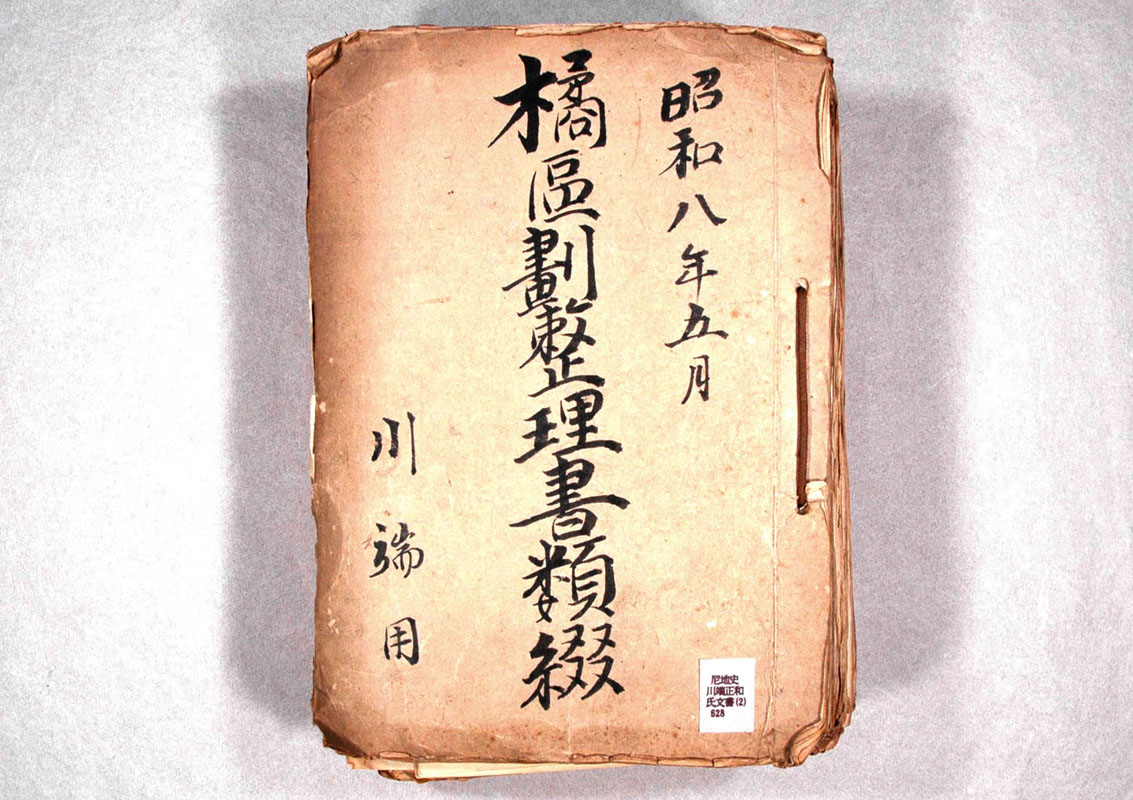 昭和八年五月
橘區劃整理書類綴
川端用
尼地史
川端正和
氏文書(2)
528